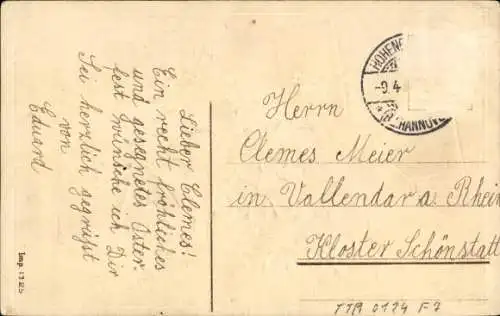 Lieber Clemes!
Ein recht fröhliches
und gesegnetes Oster-
fest wünsche ich Dir
Sei herzlich gegrüßt
von
Eduard
HOHENE
-9.4
HANNOV
Herrn
Clemes Meier
in Vallendar a. Rhein
Kloster Schönstatt
Imp.
0124 F7